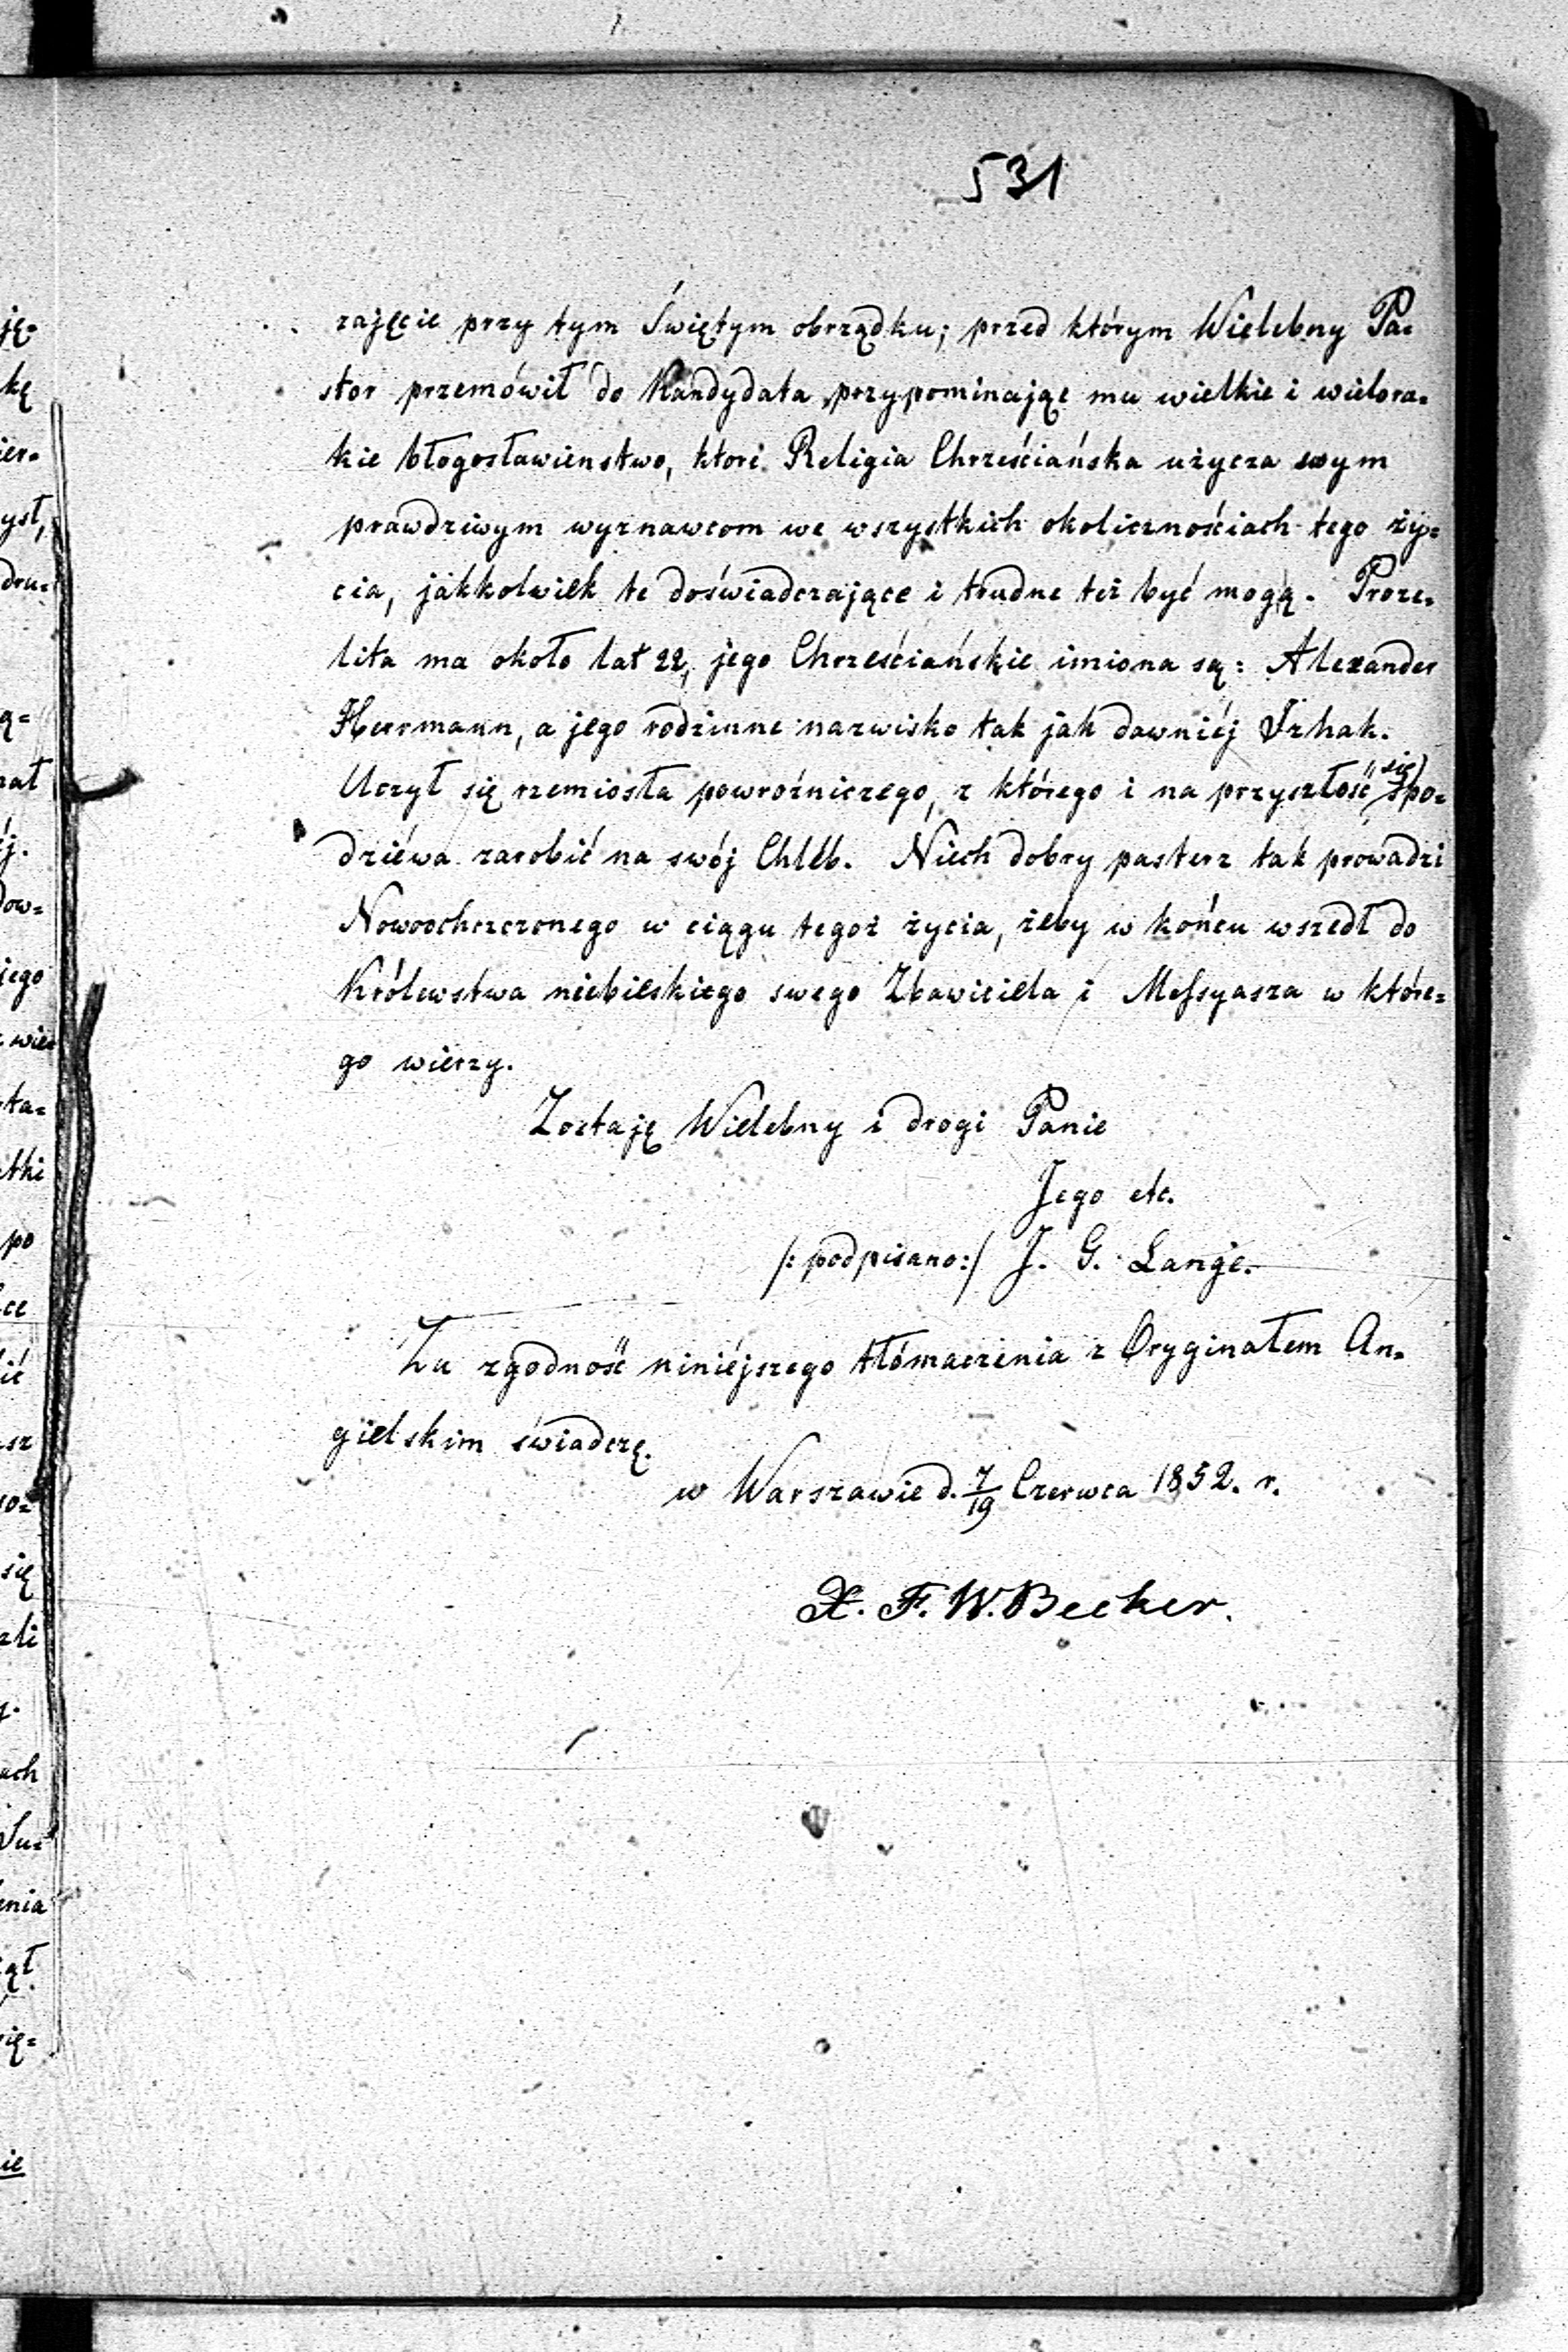 531
zajęcie przy tym Świętym obrządku; przed którym Wielebny Pa-
stor przemówił do Kandydata przypominając mu wielkie i wielora-
kie błogosławieństwo, które Religia Chrześciańska użycza swym
prawdziwym wyznawcom we wszystkich okolicznościach tego ży-
cia, jakkolwiek te doświadczające i trudne też być mogą. Proze-
lita ma około lat 22, jego Chrześciańskie imiona są: Alexander
Herrmann, a jego rodzinne nazwisko tak jak dawniéj Izhak.
Uczył się rzemiosła powroźniczego, z którego i na przyszłość się spo-
dziéwa zarobić na swój Chléb. Niech dobry pasterz tak prowadzi
Nowoochrzczonego w ciągu tegoż życia, żeby w końcu wszedł do
Królewstwa niebieskiego swego Zbawiciela i Messyasza w które-
go wierzy.
Zostaję Wielebny i drogi Panie
Jego etc.
/:podpisano:/ J. G. Lange.
Za zgodność niniéjszego tłómaczenia z Oryginałem An-
gielskim świadczę.
w Warszawie d. 7/19 Czerwca 1852. r.
X. F. W. Becker.